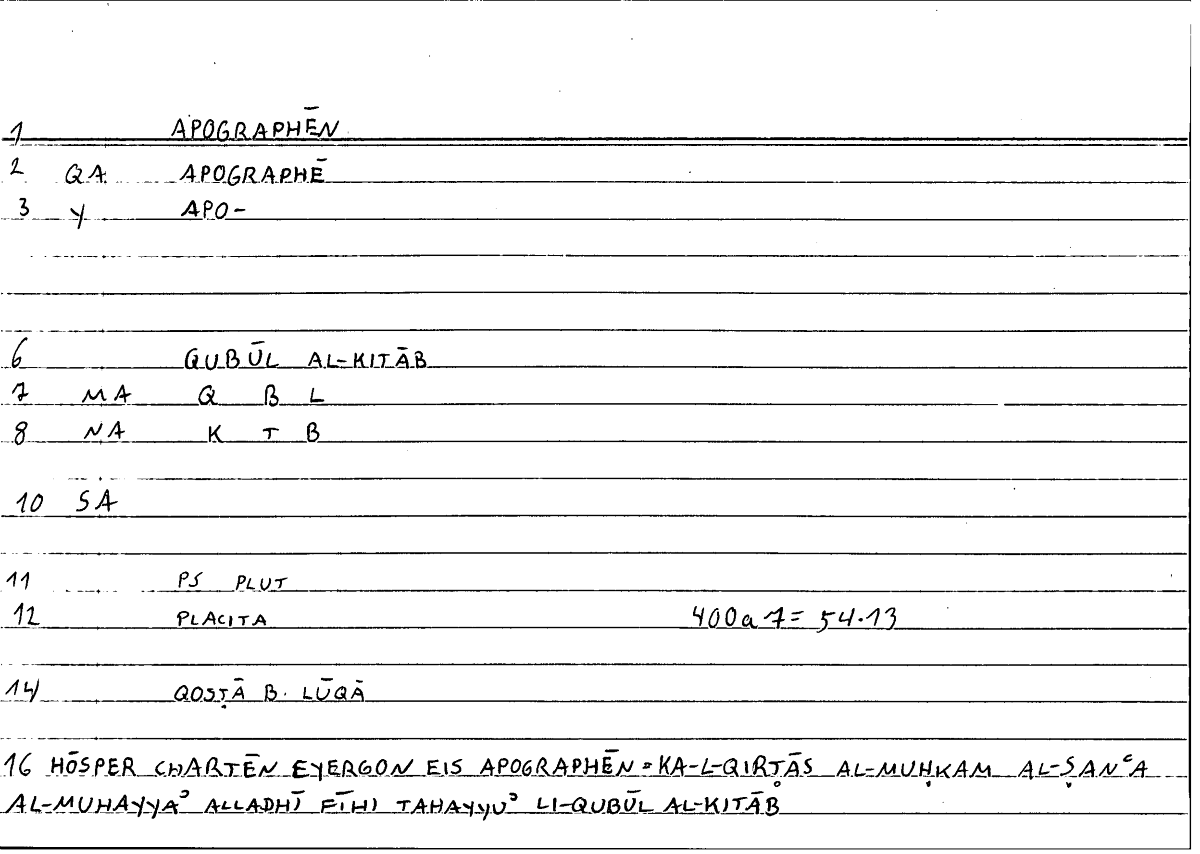 1 APOGRAPHĒN
2 QA APOGRAPHĒ
3 Y APO-
6 QUBŪL AL-KITĀB
7 MA Q B L
8 NA K T B
10 SA
11 PS PLUT
12 PLACITA 400a7= 54.13
14 QOSṬĀ B. LŪQĀ
16 HŌSPER CHARTĒN EYERGON EIS APOGRAPHĒN = KA-L-QIRṬĀS AL-MUḤKAM AL-ṢANʿA
AL-MUHAYYAʾ ALLADHĪ FĪHI TAHAYYUʾ LI-QUBŪL AL-KITĀB